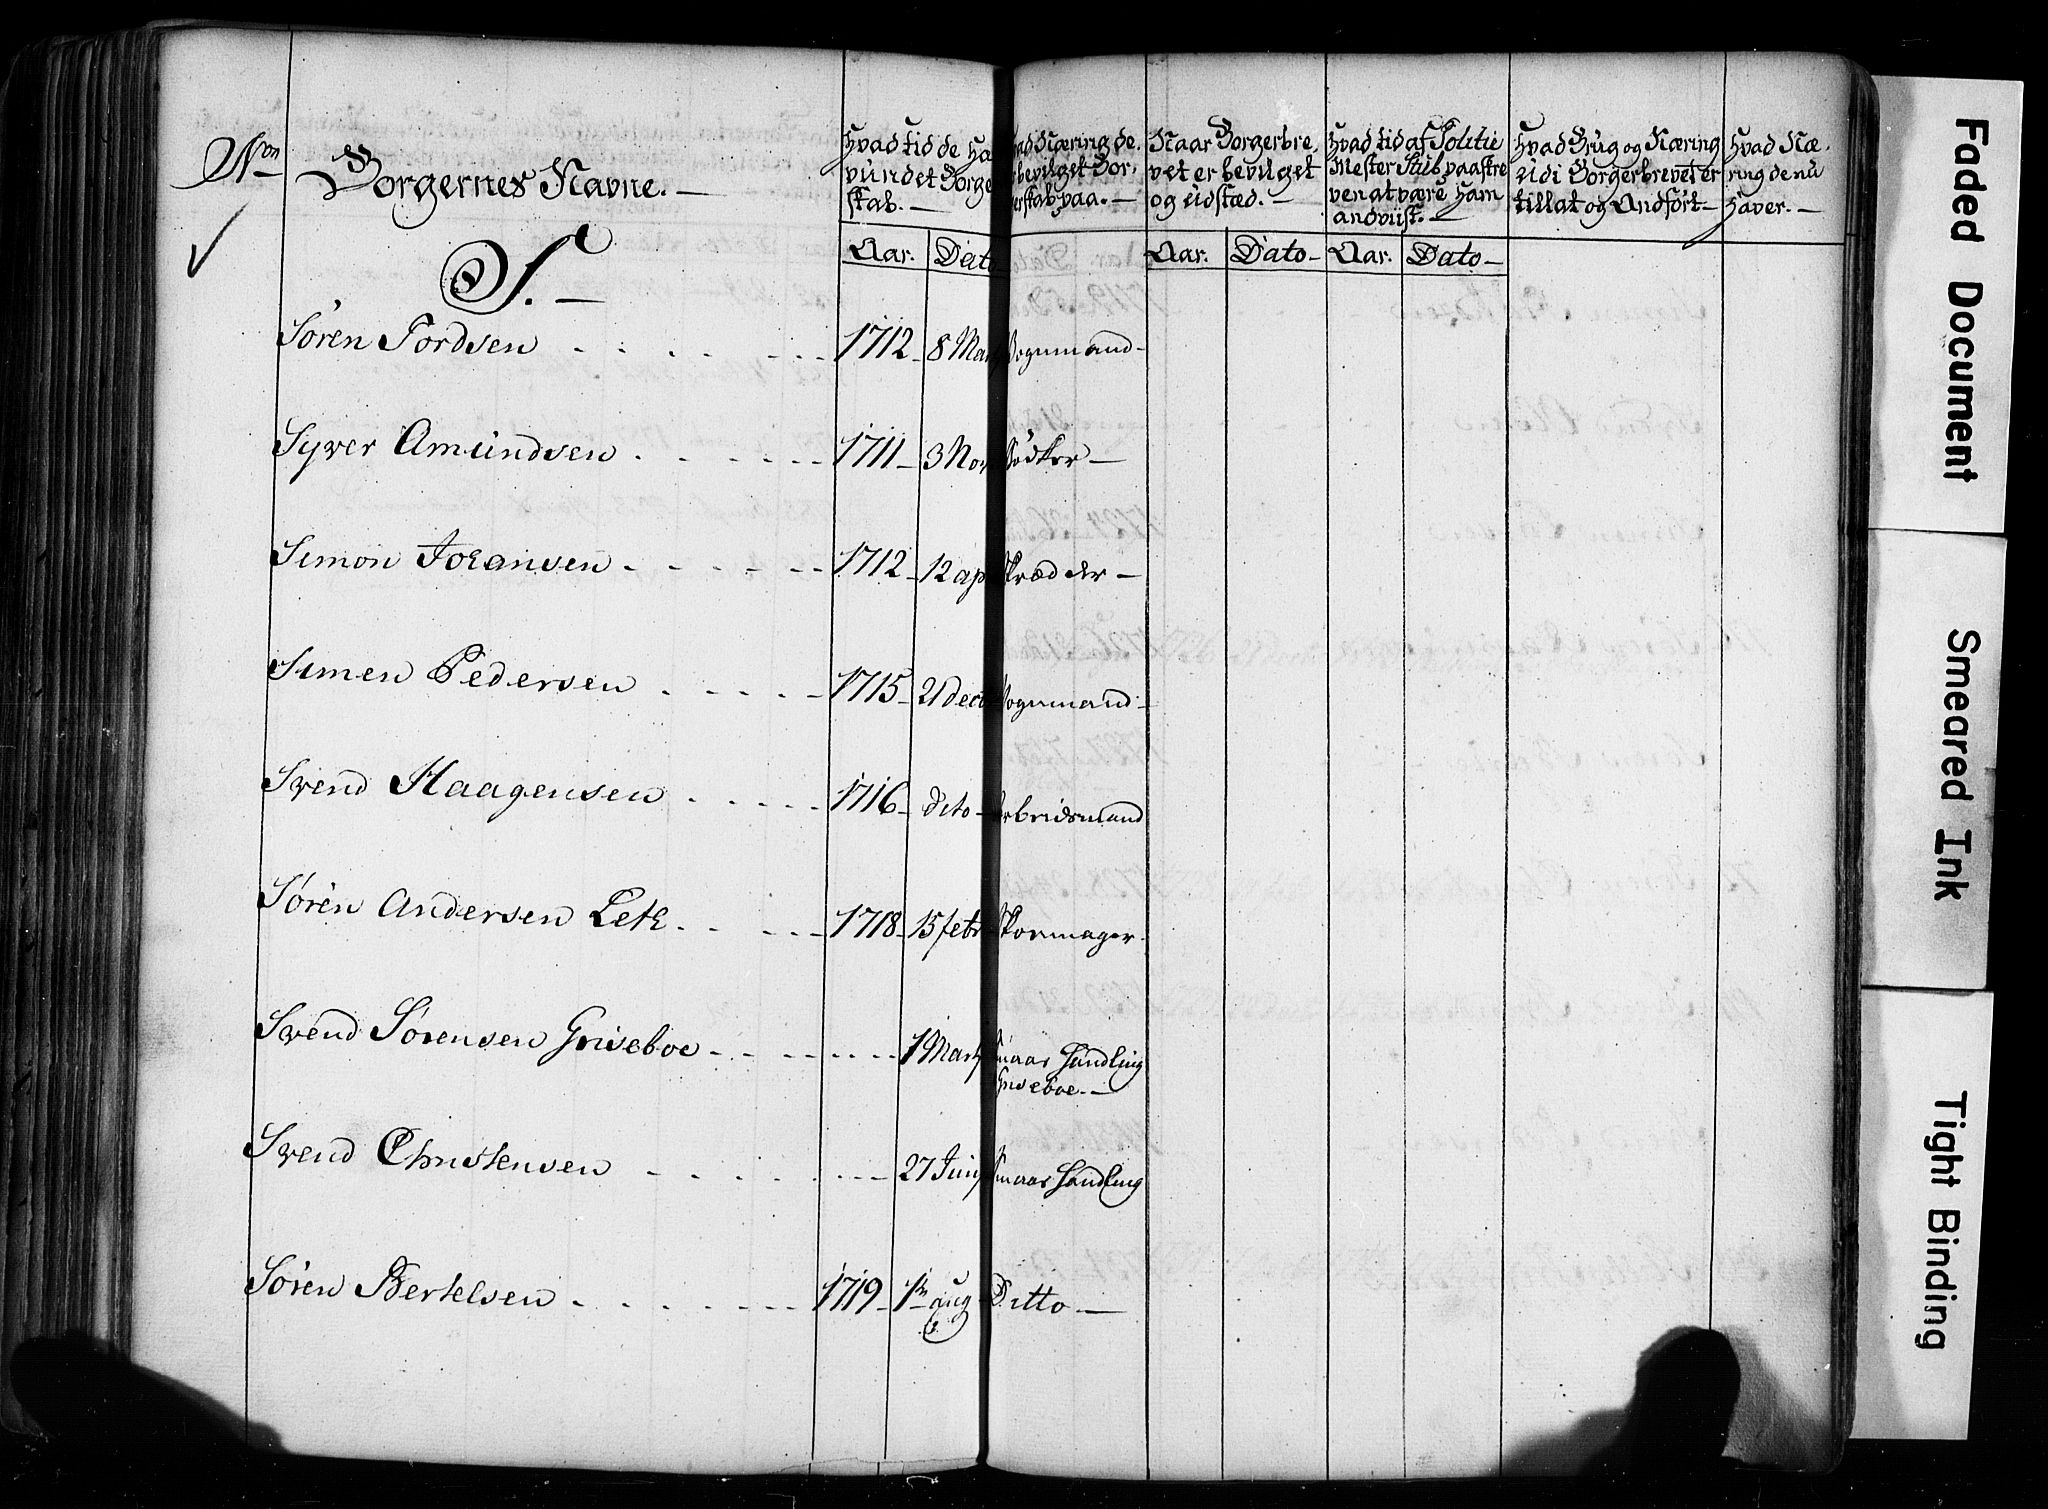 No
Borgernes Navne.
Hvad tid de Ha
vundet Borge
skab.
ad Næring de
bevilget Bor,
erskab paa.
Naar Borgerbre,
vet er bevilget
og udstæd.
Hvad tid af Politie
Mester Stub paaskre
ven at være ham
andviist.
Hvad Brug og Næring
udi Borgerbrevet er
tillat og Andført
Hvad Næ,
ring de nu
haver.
Aar. Dato Aar. Dato Aar. Dato
S.
Søren Tordsen 1712 8 Mar ognmand
Syver Amundsen 1711 3 Nov ødker
Simon Johansen 1712 12 ap kræder
Simen Pedersen 1715 21 dec ognmand
Svend Haagensen 1716 dito rbeidsmand
Søren Andersen Leth 1718 15 febr koemager
Svend Sørensen Griseboe 1 Marti maae Handling
Griseboe
Svend Christensen 27 Junj maae Handling
Søren Bertelsen 1719 1 aug Ditto
Faded Document
Smeared Ink
Tight Binding